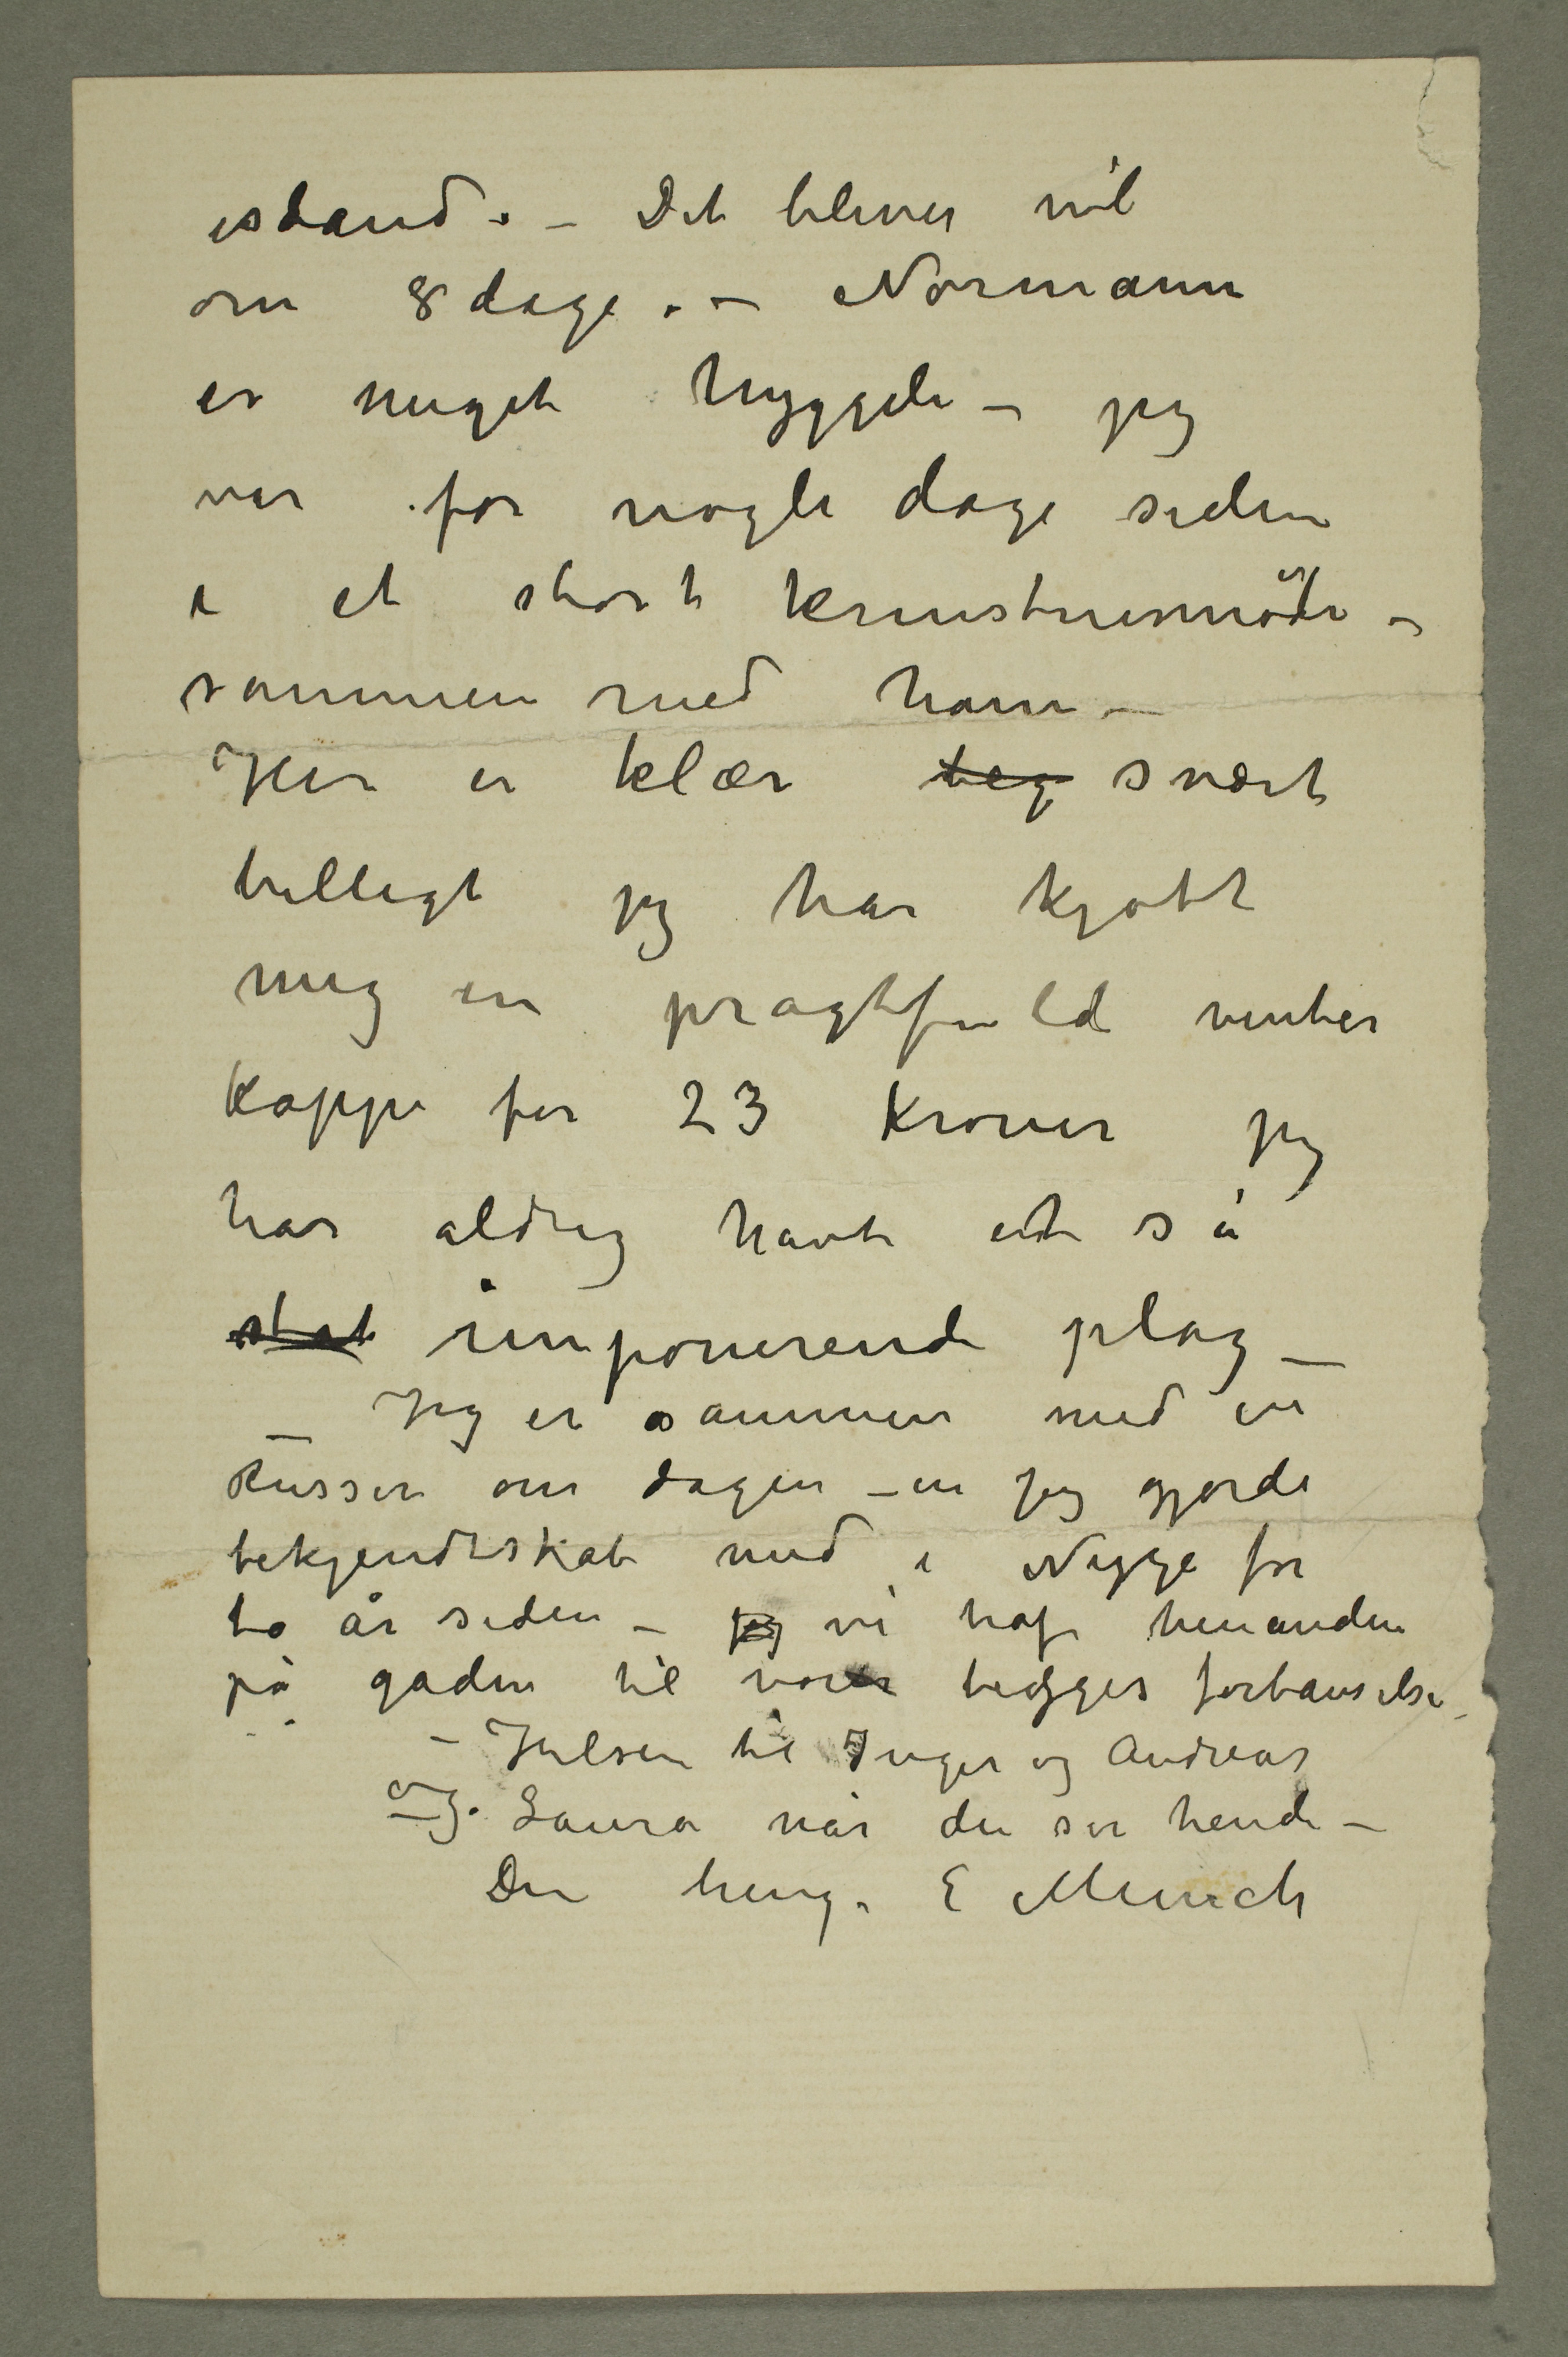 istand. – Det bliver vel
om 8 dage. – Normann
er meget hyggeli – jeg
var for nogle dage siden
i et stort kunstnermöde –
sammen med ham –
Her er klær beg svært
billigt jeg har kjøbt
mig en pragtfuld vinter
kappe for 23 Kroner jeg
har aldrig havt et så
stat imponerende plag –
– Jeg er sammen med en
Russer om dagen – en jeg gjorde
bekjendtskab med i Nizza for
to år siden – jeg vi traf hinanden
på gaden til vores begges forbauselse –
– Hilsen til Inger og Andreas
og Laura når du ser hende –
Din heng. E Munch